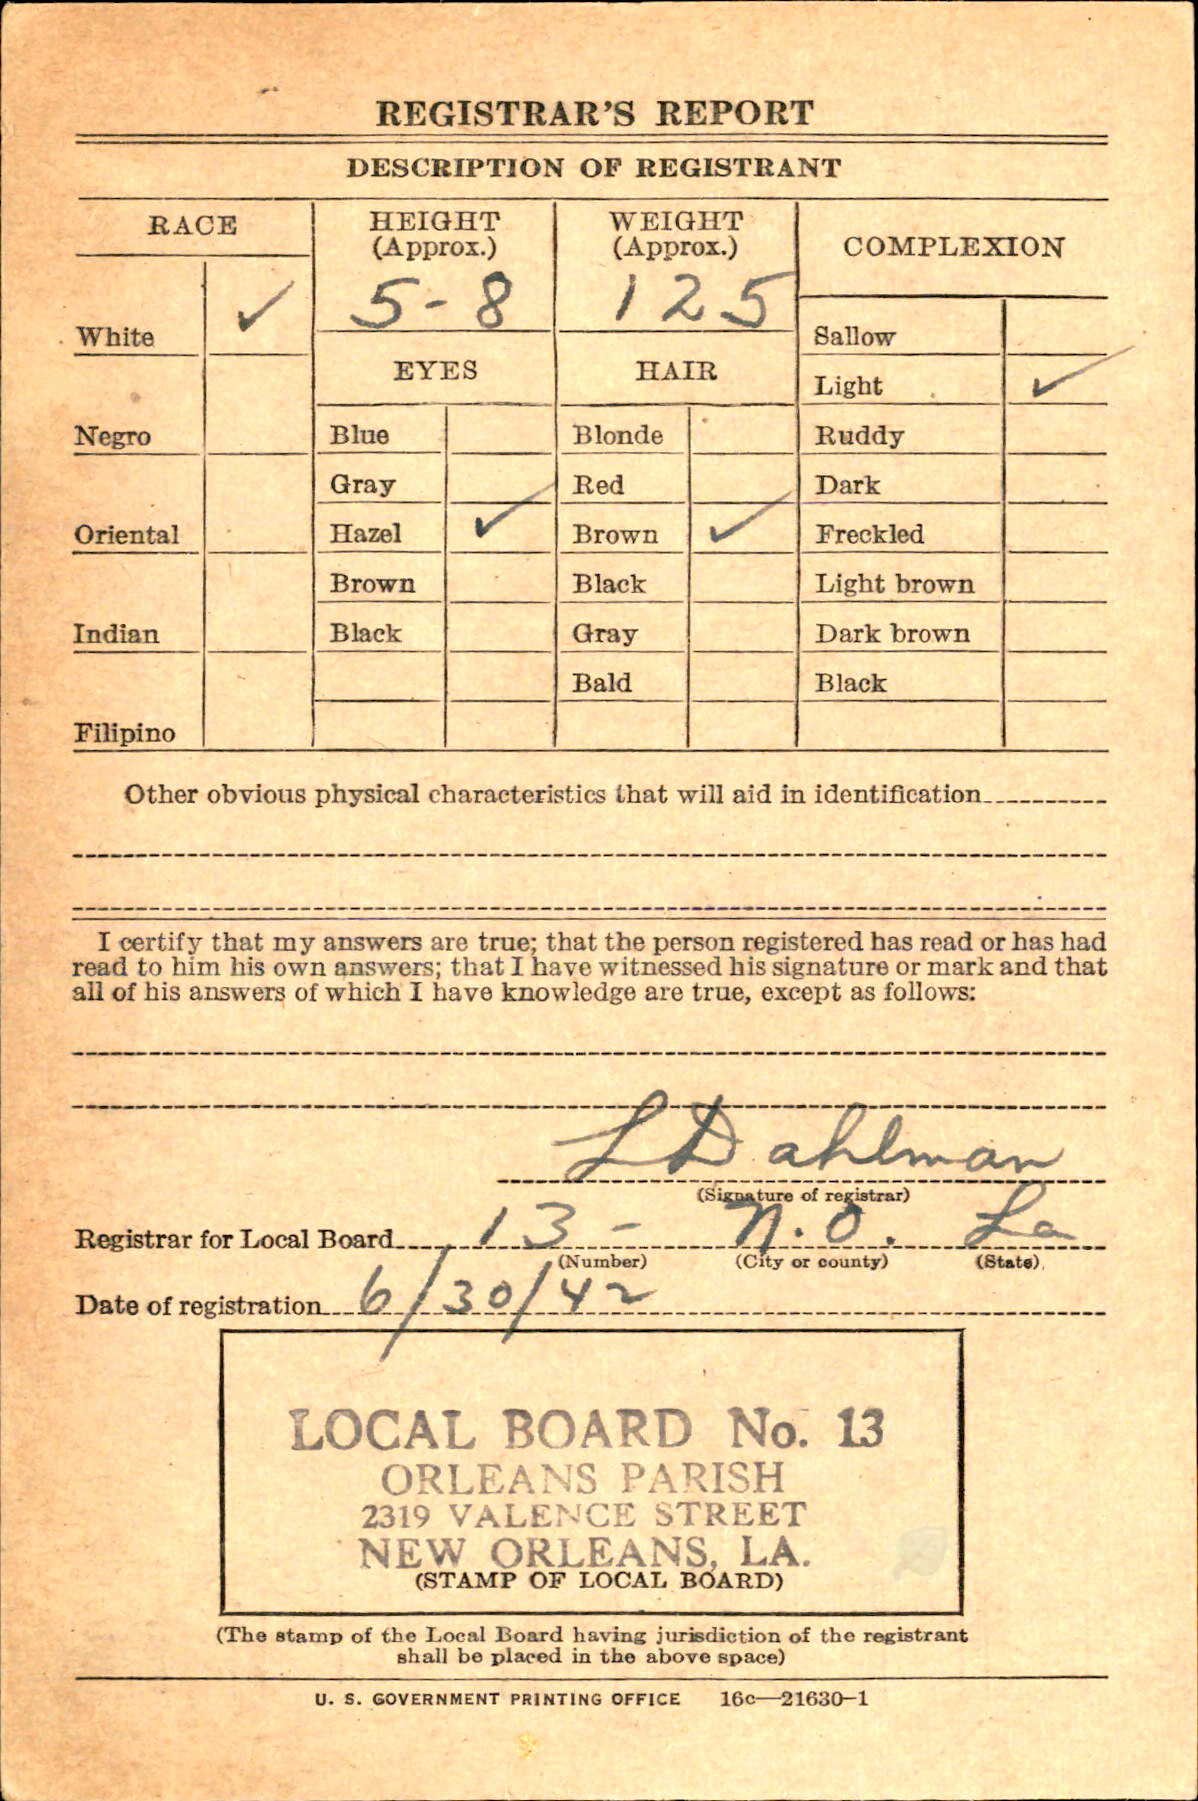 REGISTRAR'S REPORT
DESCRIPTION OF REGISTRANT
RACE
HEIGHT
(Approx.)
WEIGHT
(Approx.)
COMPLEXION
White ✓
5-8
125
Sallow
EYES
HAIR
Light ✓
Negro
Blue
Blonde
Ruddy
Gray
Red
Dark
Oriental
Hazel ✓
Brown ✓
Freckled
Brown
Black
Light brown
Indian
Black
Gray
Dark brown
Bald
Black
Filipino
Other obvious physical characteristics that will aid in identification
I certify that my answers are true; that the person registered has read or has had
read to him his own answers; that I have witnessed his signature or mark and that
all of his answers of which I have knowledge are true, except as follows:
L Dahlman
(Signature of registrar)
Registrar for Local Board 13 - N.O. La
(Number) (City or county) (State)
Date of registration 6/30/42
LOCAL BOARD No. 13
ORLEANS PARISH
2319 VALENCE STREET
NEW ORLEANS, LA.
(STAMP OF LOCAL BOARD)
(The stamp of the Local Board having jurisdiction of the registrant
shall be placed in the above space)
U. S. GOVERNMENT PRINTING OFFICE 16c—21630-1